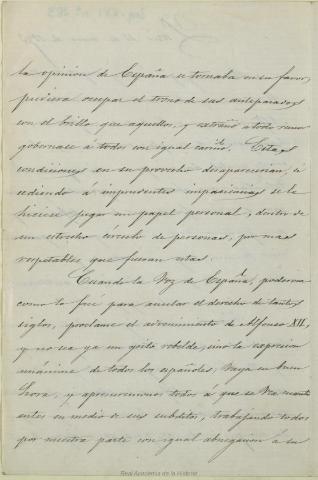 la opinion de España se tornaba en su favor,
pudiera ocupar el trono de sus antepasados
con el brillo que aquellos, y extraño a todo
gobernase á todos con igual cariño. Estas
condiciones en su provecho desaparecerian, si
cediendo á imprudentes impaciencias se le
hiciese jugar un papel personal, dentro de
un estrecho círculo de personas, por mas
respetables que fueran estas.
Cuando la Voz de España, poderosa
como lo fué para anular el derecho de tantos
siglos, proclame el advenimiento de Alfonso XII,
y no sea ya un grito rebelde, sino la expresion
unánime de todos los españoles, vaya en buen
hora, y apresuremonos todos á que se vea cuanto
antes en medio de sus subditos, trabajando todos
por nuestra parte con igual abnegacion á su
Real Academia de la Historia